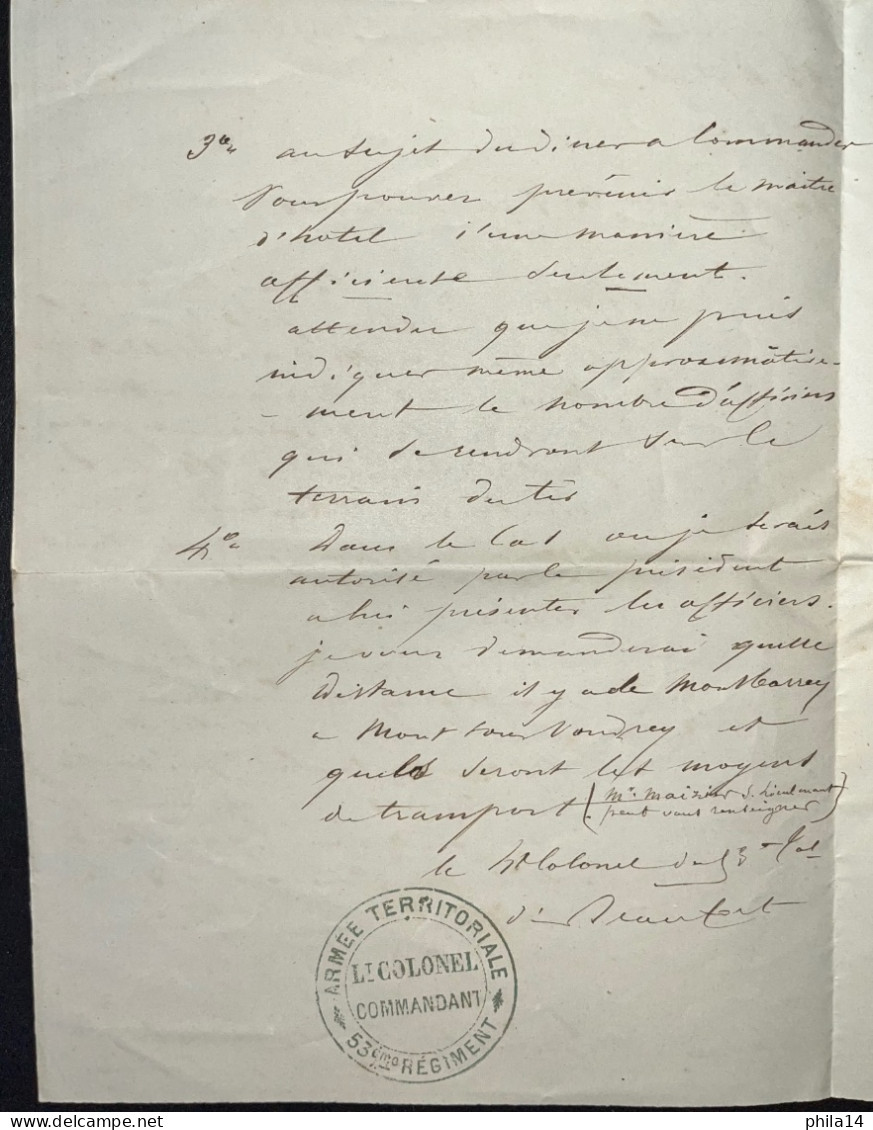 3° au sujet du diner a Commander
Vous pouvez prévenir le maitre
d'hotel d'une manière
officieuse seulement.
attendu que je ne puis
indiquer même approximative-
-ment le nombre d'officiers
qui se rendront sur le
terrain du tir
4° Dans le Cas ou je serais
autorisé par le président
a lui présenter les officiers.
je vous demanderai quelle
distance il y a de Montbarrey
a Mont sous Vaudrey et
quels seront les moyens
de transport (Mr. Maizier S. Lieutenant
peut vous renseigner)
le Lt Colonel du 53e
ARMÉE TERRITORIALE
LT COLONEL
COMMANDANT
53ème RÉGIMENT
delcampe.net
phila14